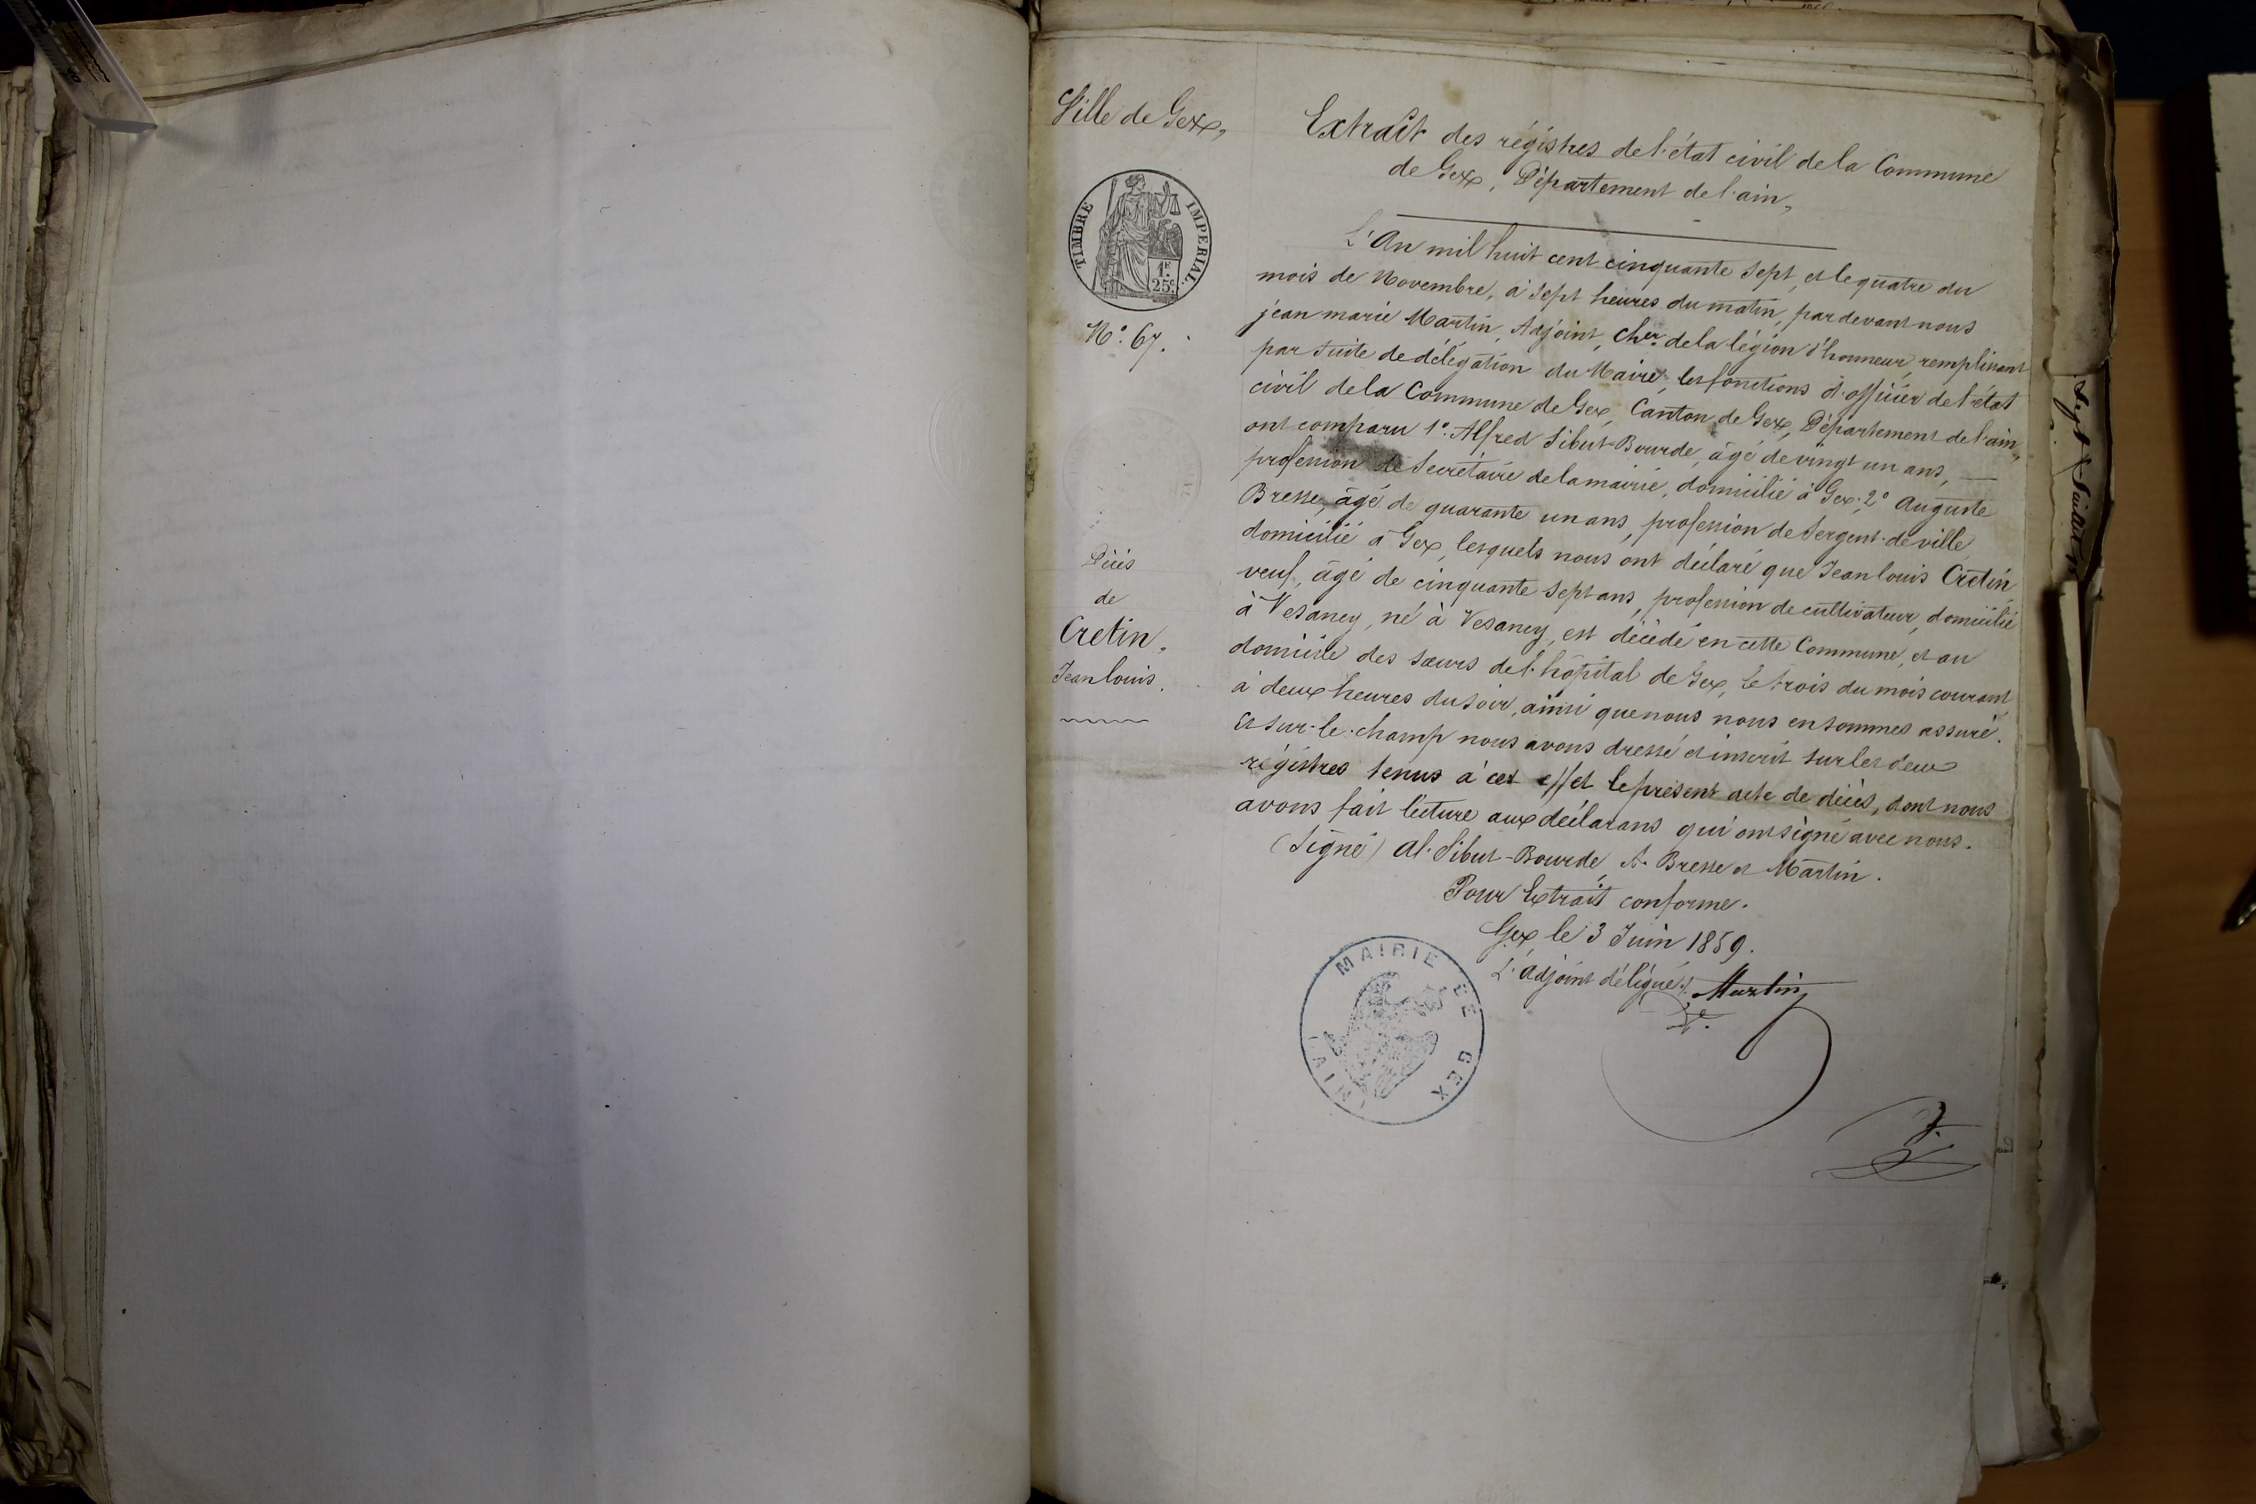 Ville de Gex,
TIMBRE IMPERIAL.
1F.
25c.
N.º 67.
Décès
de
Cretin.
Jean louis.
Extrait des régistres de l'état civil de la Commune
de Gex, Département de l'ain,
L'An mil huit cent cinquante sept, et le quatre du
mois de Novembre, à sept heures du matin, par devant nous
jean marie Martin, Adjoint, Cher. de la légion d'honneur, remplissant
par suite de délégation du Maire, les fonctions d'officier de l'état
civil de la Commune de Gex, Canton de Gex, Département de l'ain,
ont comparu 1º. Alfred Sibut-Bourde, âgé de vingt un ans, —
profession de Secrétaire de la mairie, domicilié à Gex; 2º Auguste
Bresse, âgé de quarante un ans, profession de Sergent de ville
domicilié à Gex, lesquels nous ont déclaré que Jean louis Crétin
veuf, âgé de cinquante sept ans, profession de cultivateur, domicilié
à Vesancy, né à Vesancy, est décédé en cette Commune, et au
domicile des sœurs de l'hôpital de Gex, le trois du mois courant
à deux heures du soir, ainsi que nous nous en sommes assuré.
Et sur-le-champ nous avons dressé et inscrit sur les deux
régistres tenus à cet effet le présent acte de décès, dont nous
avons fait lecture aux déclarans qui ont signé avec nous.
(Signé) Al. Sibut-Bourde, A. Bresse et Martin.
Pour Extrait conforme.
Gex, le 3 Juin 1859.
L'adjoint délégué,
Martin
MAIRIE DE GEX
(AIN)